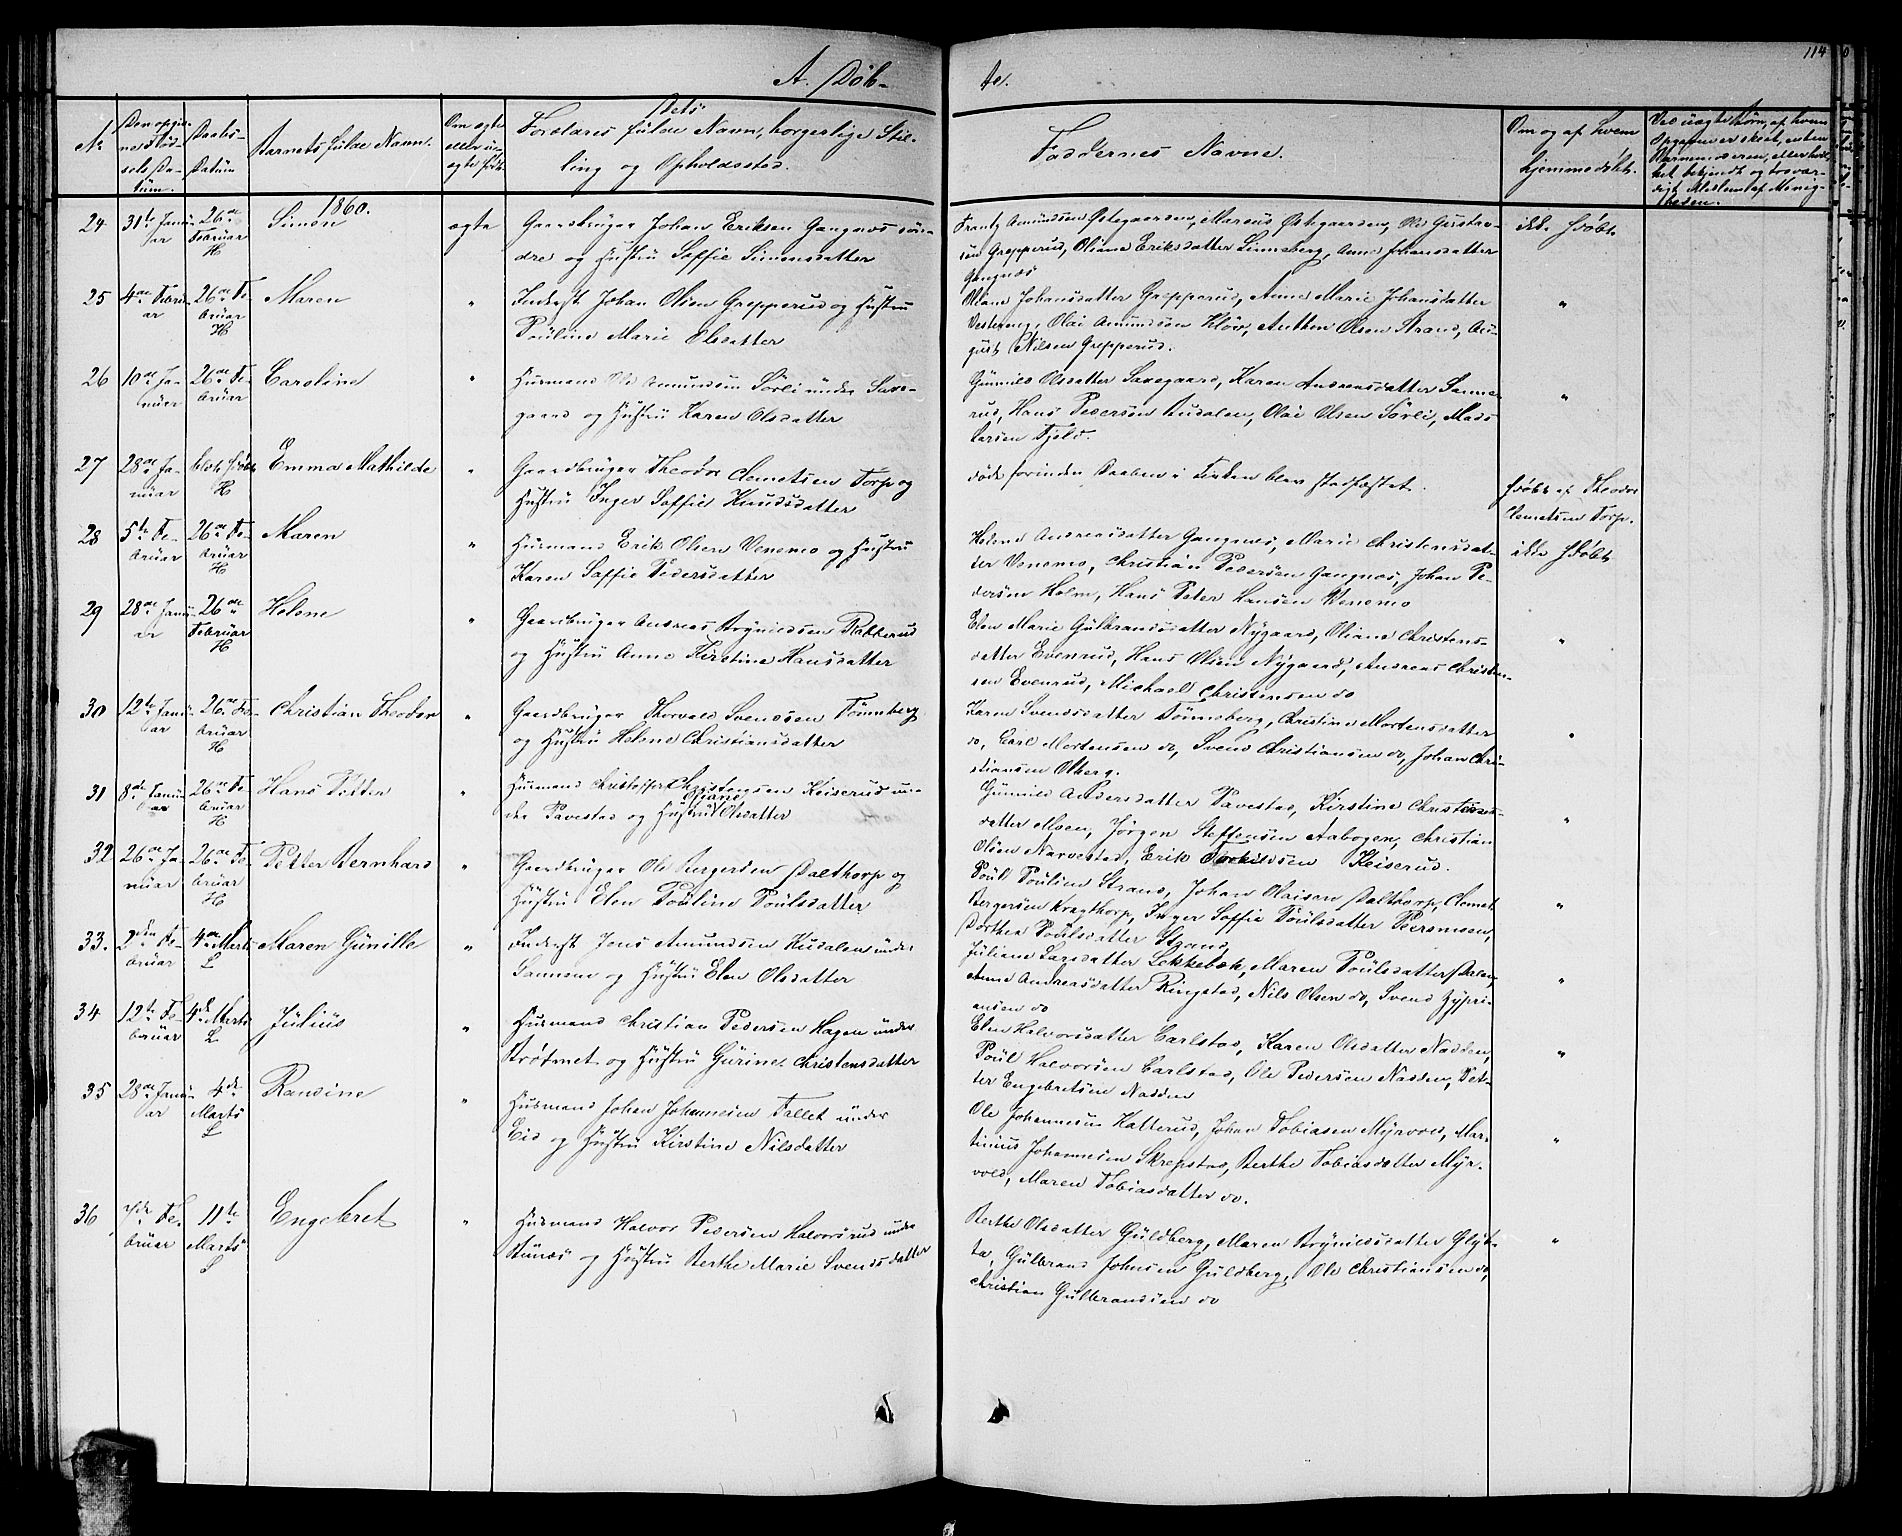 114
A. Døb-
te.
No
Den opgiv-
ne Fød-
sels Da-
tum.
Daabs-
Datum
Barnets fulde Navn.
Om ægte
eller u-
ægte født
Dets
Forældres fulde Navn, borgerlige Stil-
ling og Opholdssted.
Faddernes Navne.
Om og af hvem
hjemmedøbt.
Ved uægte Børn, af hvem
Opgaven er skeet, enten
Barnemoderen, eller hvil-
ket bekjendt og trovær-
digt Medlem af Menig-
heden.
1860.
24 31te Janu-
ar
26de
Februar
H
Simon
ægte
Gaardbruger Johan Eriksen Gangnæs søn-
dre og Hustru Saffie Simensdatter
Frantz Amundsen Østegaarden, Marcus Østgaarden, Ole Gustav-
sen Grepperud, Oliane Eriksdatter Linneberg, Anne Johansdatter
Gangnæs
ikke hjdøbt.
25 4de Febru-
ar
26de Fe-
bruar
H
Maren
"
Inderst Johan Olsen Grepperud og Hustru
Pouline Marie Olsdatter
Oliane Johansdatter Grepperud, Anne Marie Johansdatter
Vestereng, Olai Amundsen Kløv, Anthon Olsen Strand, Au-
gust Nilsen Grepperud.
"
26 10de Ja-
nuar
26de Fe-
bruar
Caroline
"
Husmand Ole Amundsen Sørli under Saxe-
gaard og Hustru Karen Olsdatter
Gunild Olsdatter Saxegaard, Karen Andreasdatter Sanne-
rud, Hans Pedersen Audalen, Olai Olsen Sørli, Mads
Larsen Fjeld.
"
27 28de Ja-
nuar
blev hjdøbt
H
Emma Mathilde
"
Gaardbruger Theodor Clemetsen Torp og
Hustru Inger Saffie Knudsdatter
døde forinden Daaben i Kirken blev stadfæstet.
hjdøbt af Theodor
Clemetsen Torp.
28 5te Fe-
bruar
26de Fe-
bruar
H
Maren
"
Husmand Erik Olsen Venemo og Hustru
Karen Saffie Pedersdatter
Helene Andreasdatter Gangnæs, Marie Christensdat-
ter Venemo, Christian Pedersen Gangnæs, Johan Pe-
dersen Holm, Hans Peter Hansen Venemo
ikke hjdøbt
29 28de Janu-
ar
26de
Februar
H
Helene
"
Gaardbruger Andreas Brynildsen Rakkerud
og Hustru Anne Kirstine Hansdatter
Elen Marie Gulbrandsdatter Nygaard, Oliane Christens-
datter Evenrud, Hans Olsen Nygaard, Andreas Christen-
sen Evenrud, Michael Christensen do
"
30 12te Janu-
ar
26de Fe-
bruar
H
Christian Theodor
"
Gaardbruger Thorvald Svendsen Tønneberg
og Hustru Helene Christiansdatter
Karen Svendsdatter Tønneberg, Christine Mortensdatter
do, Carl Mortensen do, Svend Christiansen do, Johan Chri-
stiansen Olberg.
"
31 8de Janu-
ar
26de Fe-
bruar
H
Hans Petter
"
Husmand Christoffer Christensen Keiserud un-
der Tavestad og Hustru Oliane Olsdatter
Gunild Andersdatter Tavestad, Kirstine Christens-
datter Moen, Jørgen Steffensen Aabogen, Christian
Olsen Narvestad, Erik Torkildsen Keiserud.
"
32 26de Ja-
nuar
26de Fe-
bruar
H
Petter Bernhard
"
Gaardbruger Ole Bergersen Dalthorp og
Hustru Elen Pouline Poulsdatter
Poul Poulsen Strand, Johan Olaisen Dalthorp, Clemet
Bergersen Kragthorp, Inger Saffie Poulsdatter Persmoen,
Dorthea Poulsdatter Strand
"
33. 2den Fe-
bruar
4de Marts
L
Maren Gunille
"
Inderst Jens Amundsen Audalen under
Sannene og Hustru Elen Olsdatter
Juliane Larsdatter Lekkebek, Maren Poulsdatter Dalen,
Anne Andreasdatter Ringstad, Nils Olsen do, Svend Zypri-
ansen do
"
34 12te Fe-
bruar
4de Marts
L
Julius
"
Husmand Christian Pedersen Hagen under
Brøtmet og Hustru Gurine Christensdatter
Elen Halvorsdatter Carlstad, Karen Olsdatter Nadden,
Poul Halvorsen Carlstad, Ole Pedersen Nadden, Pet-
ter Engebretsen Nadden
"
35 28de Janu-
ar
4de
Marts
L
Randine
"
Husmand Johan Johannesen Fallet under
Eid og Hustru Kirstine Nilsdatter
Ole Johannesen Katterud, Johan Tobiasen Myrvold, Mar-
tinius Johannesen Skrepstad, Berthe Tobiasdatter Myr-
vold, Maren Tobiasdatter do.
"
36 7de Fe-
bruar
11te
Marts
S
Engebret
"
Husmand Halvor Pedersen Halvorsrud under
Stunæs og Hustru Berthe Marie Svendsdatter
Berthe Olsdatter Guldberg, Maren Brynildsdatter Glyt-
ta, Gulbrand Johnsen Guldberg, Ole Christiansen do,
Christian Gulbrandsen do
"